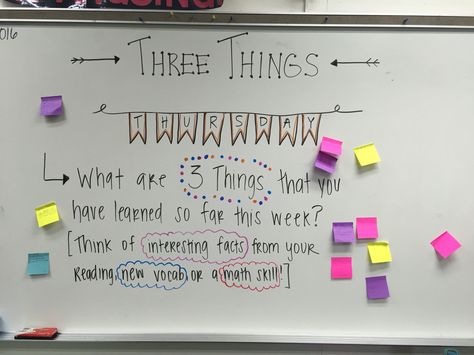 016
THREE THINGS
THURSDAY
What are 3 Things that you
have learned so far this week?
[Think of interesting facts from your
Reading, new vocab or a math skill!]